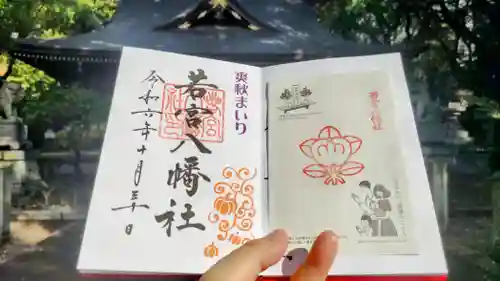 爽秋まいり
若宮八幡社
令和六年十月三十日